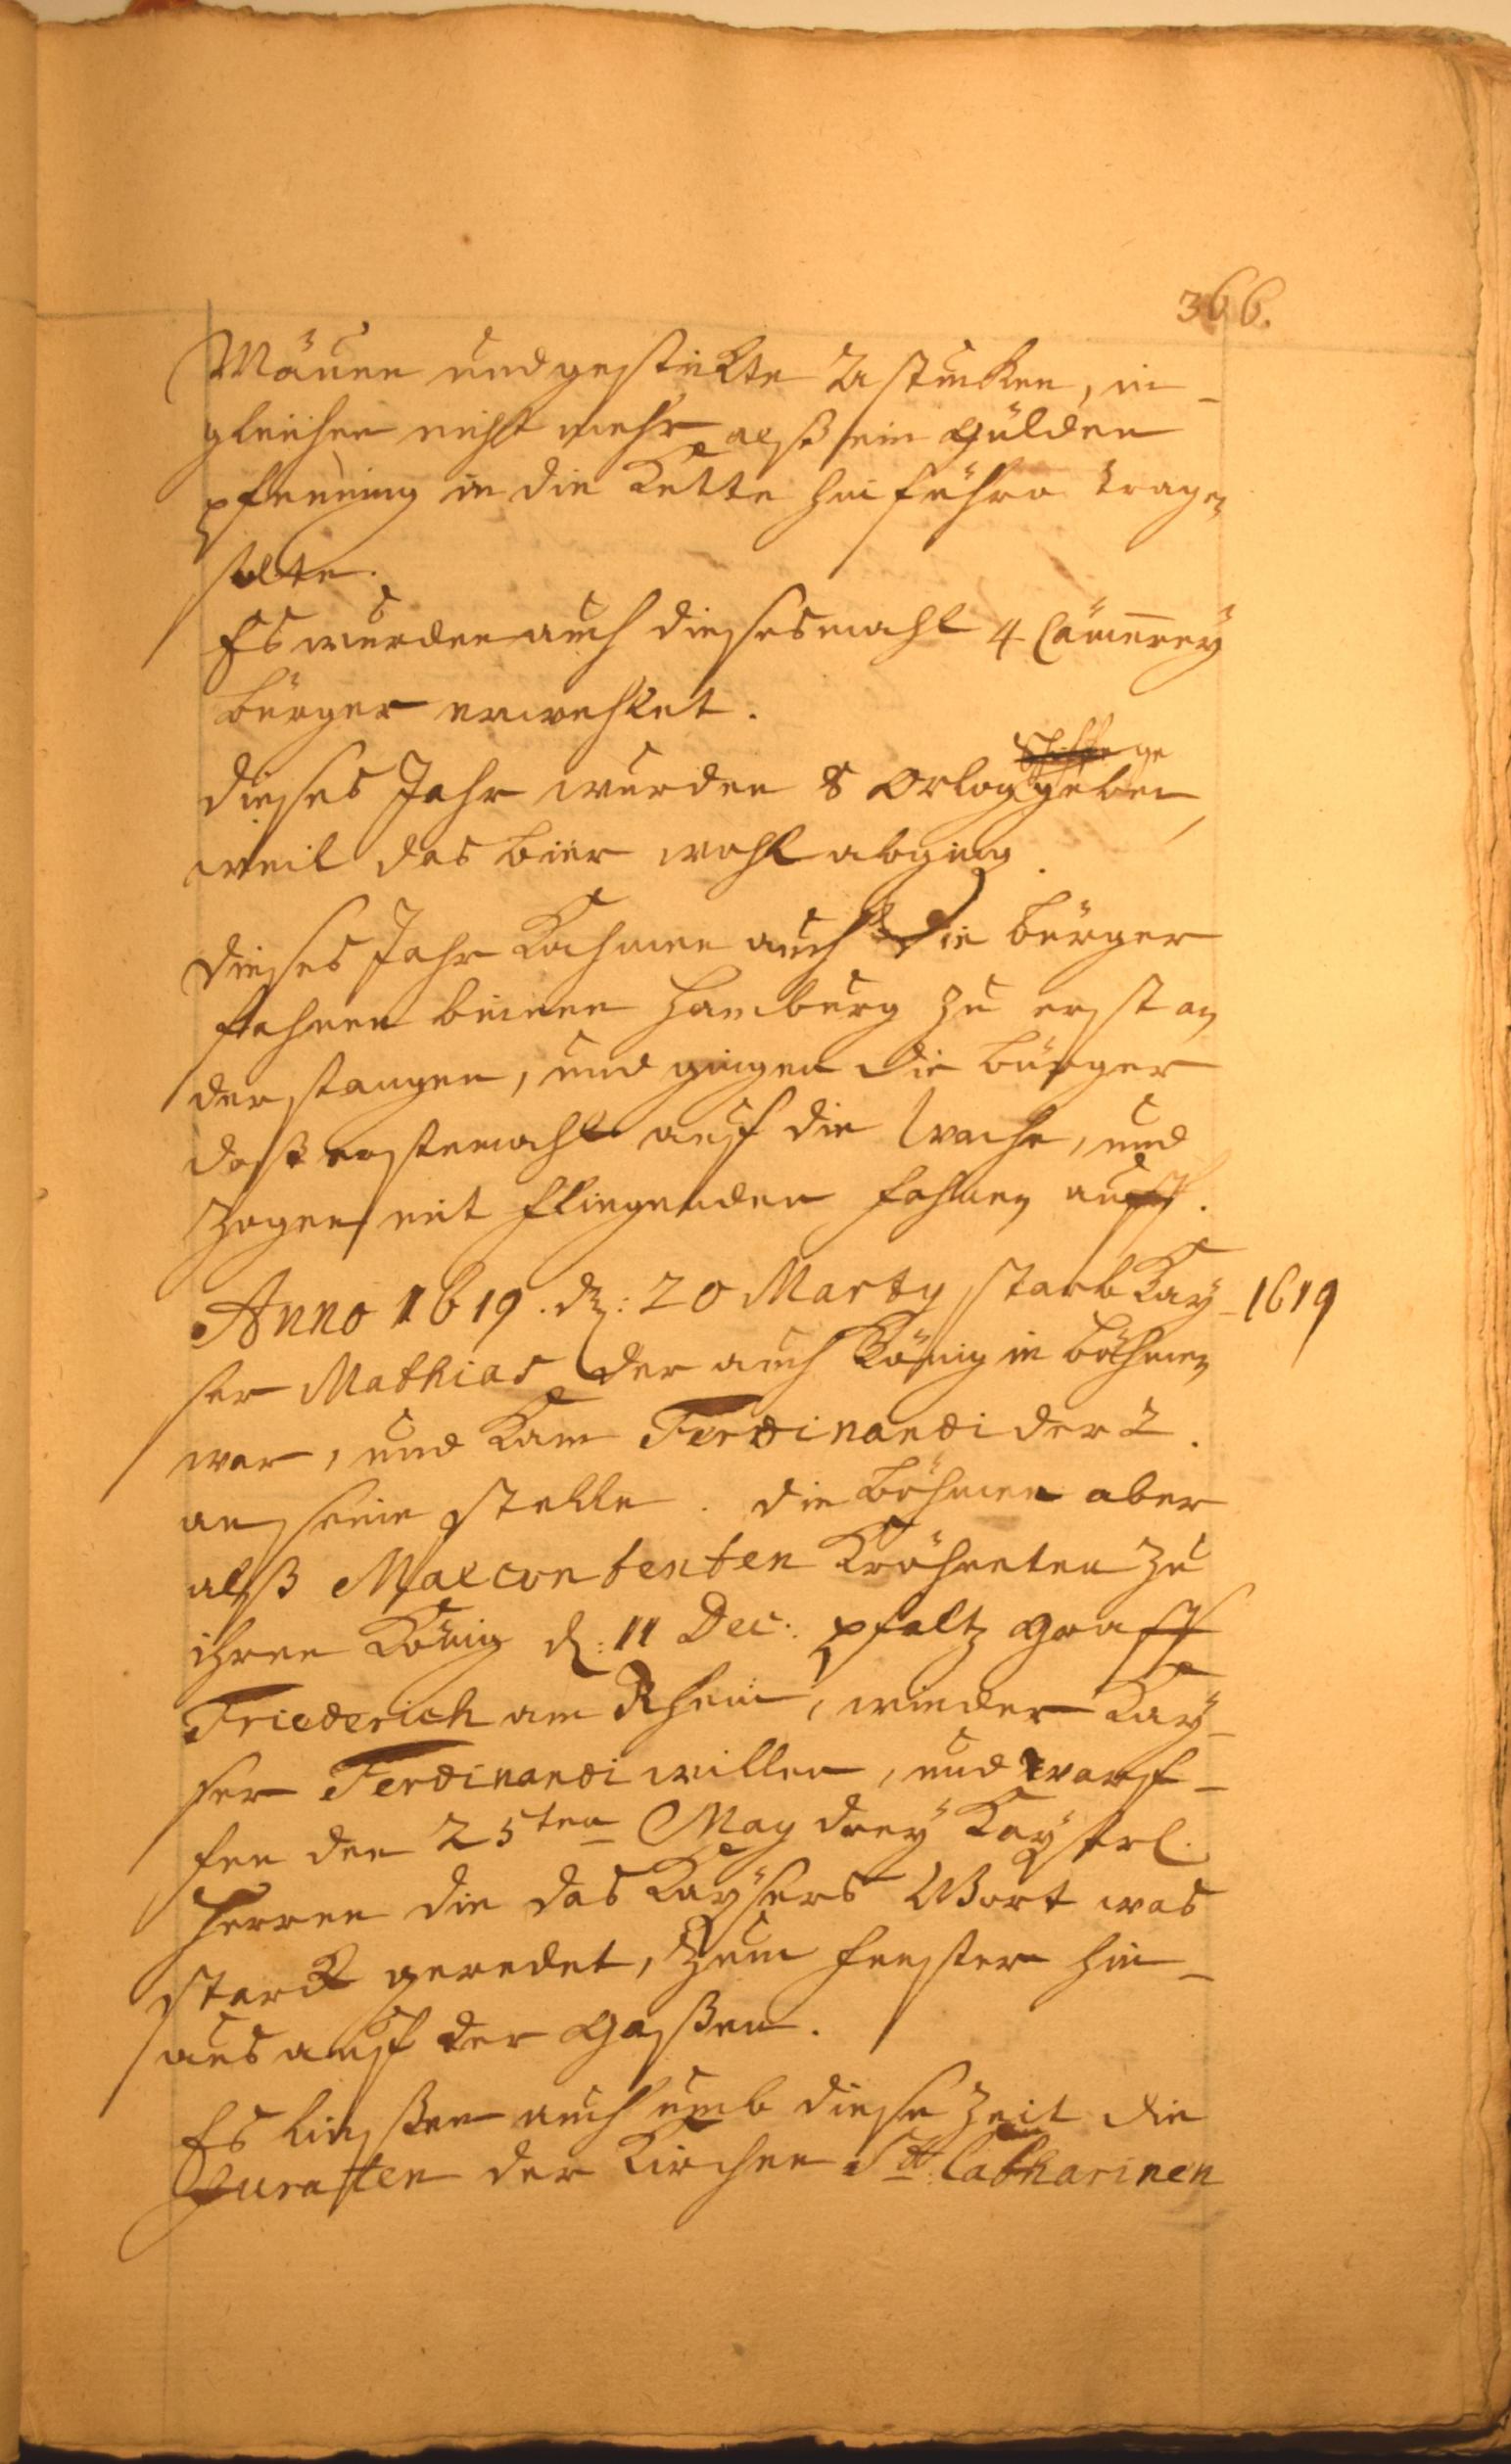 366.
Mauen und gestickte Brstucken, in-
gleichen nicht mehr alß ein Gülden
pfenning in die Kette hinführo tragen
solte.
Es wurden auch diesesmahl 4 Cämerey
bürger erwehlet.
dieses Jahr wurden 8 Orlog gegeben,
weil das bier wohl abging.
dieses Jahr Kahmen auch die bürger
fahnen binnen Hamburg zu erst an
der stangen, und gingen die bürger
daß erstemahl auf die Wache, und
zogen mit fliegenden fahnen auff.
Anno 1619. dn: 20 Marty starb Kay-
1619
ser Mathias der auch König in böhmen
war, und Kam Ferdinandi der 2.
an seine stelle. die böhmen aber
alß Malcontenten Kröhneten zu
ihren König d: 11 Dec: pfaltz Graff
Friederich am Rhein, wieder Kay-
ser Ferdinandi willen, und warf-
fen den 25ten May drey Kayserl.
Herren die das Kaysers Wort was
starck geredet, zum fenster hin-
aus auf der Gaßen.
Es ließen auch umb diese Zeit die
Juraten der Kirchen St. Catharinen